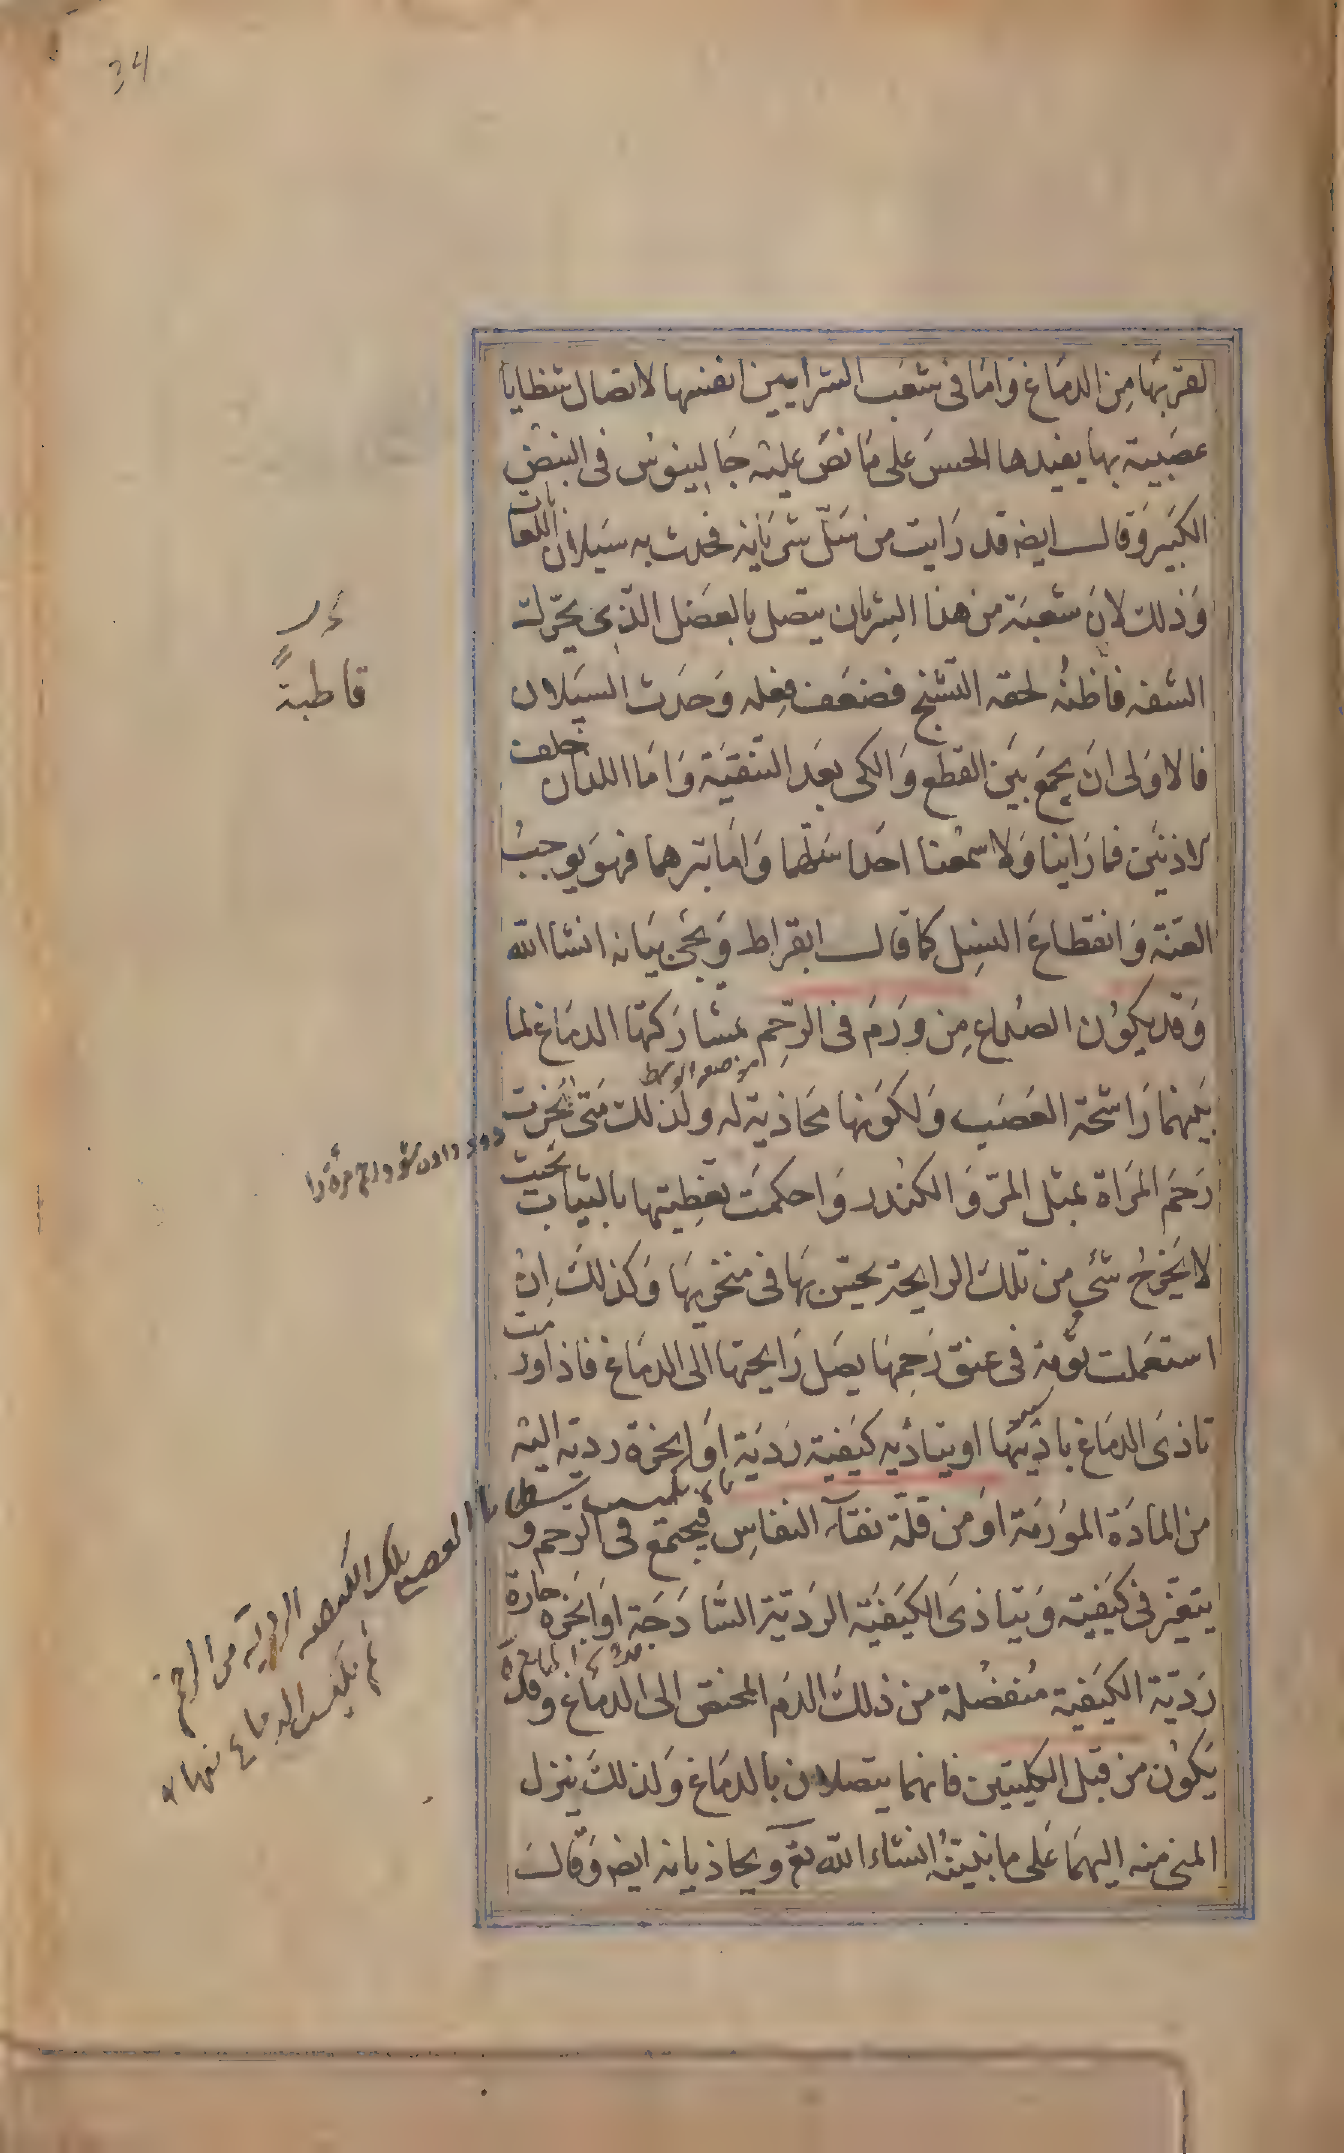 34
لقربها من الدماغ واما فى شعب الشرايين انفسها لاتصال شظايا
عصبية بها يفيدها الحس على ما نص عليه جالينوس فى النبض
الكبير وقال ايضه قد رايت من سل شريانه فحدث به سيلان اللعاب
وذلك لان شعبة من هذا الشريان يتصل بالعضل الذى يحرك
الشفه فاظنه لحقه التشنج فضعف فعله وحدث السيلان
قاطبة
فالاولى ان يجمع بين القطع والكى بعد التنقية واما اللذان خلف
الاذنين فما راينا ولا سمعنا احدا سلهما واما بترهما فهو يوجب
العقنة وانقطاع النسل كما قال ابقراط ويجئ بيانه انشا الله
وقد يكون الصداع من ورم فى الرحم بمشاركتها الدماغ لما
بينهما راشحة العصب ولكونها محاذية له ولذلك متى بخرت
رحم المراة بمثل المر والكندر واحكمت تغطيتها بالثياب بحيث
لا يخرج شئ من تلك الرايحة يحس بها فى منخريها وكذلك ان
استعملت ثومة فى عنق رحمها يصل رايحتها الى الدماغ فاذا اورمت
تاذى الدماغ باذيتها او يتاديه كيفية ردية او ابخرة رديه اليه
من المادة المورمة او من قلة نقآء النفاس فيجتمع فى الرحم و
يتغير فى كيفيته ويتاذى الكيفية الردية الساذجة او ابخره حارة
ردية الكيفية منفصلة من ذلك الدم المحتقن الى الدماغ وقد
تلك الكيفية الرديه من الرحم
يكون من قبل الكليتين فانهما يتصلان بالدماغ ولذلك ينزل
المنى منه اليهما على ما نبينه انشاء الله تع ويحاذيانه ايضه وقال